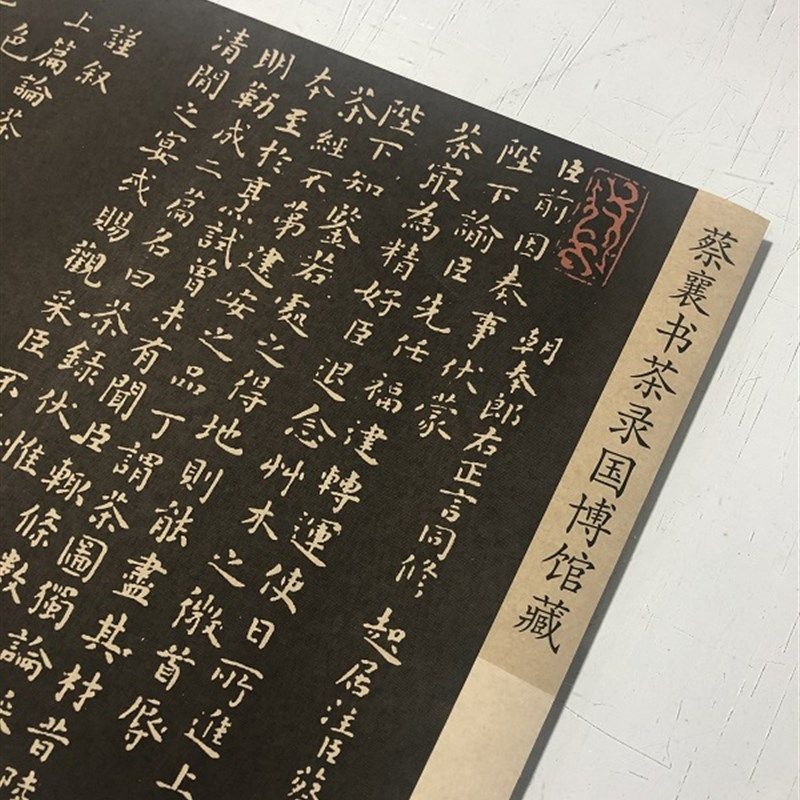 蔡襄书茶录国博馆藏
朝奉郎右正言同修 起居注臣蔡
臣前因奏事伏蒙
陛下諭臣先任福建轉運使日所進上
茶㝡為精好臣退念艸木之微首辱
陛下知鑒若處之得地則能盡其材昔陸
茶經不第建安之品丁謂茶圖獨論采
本至於烹試曾未有聞臣輒條數
明勒成二篇名曰茶錄伏惟
清閒之宴或賜觀采臣不
謹叙
上篇論茶
色 茶